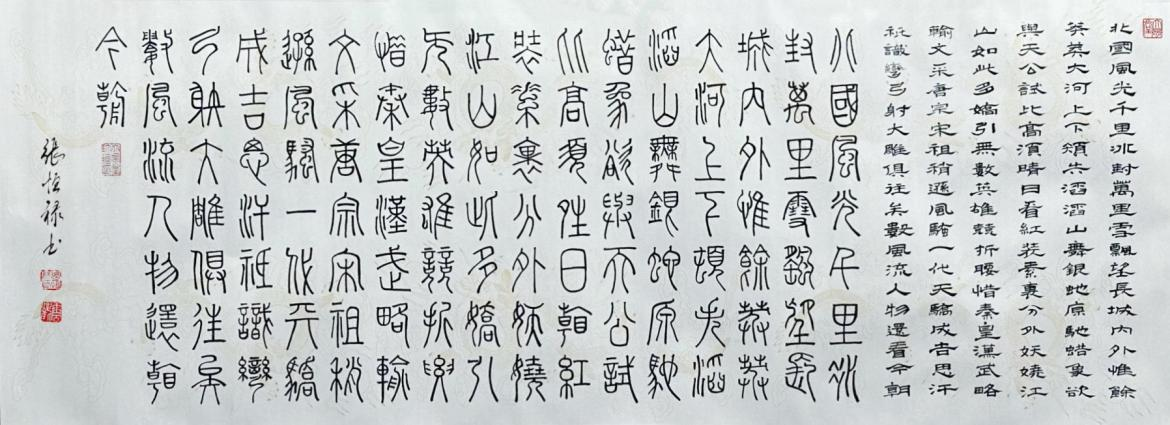 北國風光千里冰封萬里雪飄望長城內外惟餘
莽莽大河上下頓失滔滔山舞銀蛇原馳蜡象欲
與天公試比高須晴日看紅裝素裹分外妖嬈江
山如此多嬌引無數英雄競折腰惜秦皇漢武略
輸文采唐宗宋祖稍遜風騷一代天驕成吉思汗
祇識彎弓射大雕俱往矣數風流人物還看今朝
北國風光千里冰
封萬里雪飄望長
城內外惟餘莽莽
大河上下頓失滔
滔山舞銀蛇原馳
蜡象欲與天公試
比高須晴日看紅
裝素裹分外妖嬈
江山如此多嬌引
無數英雄競折腰
惜秦皇漢武略輸
文采唐宗宋祖稍
遜風騷一代天驕
成吉思汗祇識彎
弓射大雕俱往矣
數風流人物還看
今朝
張恒祿书